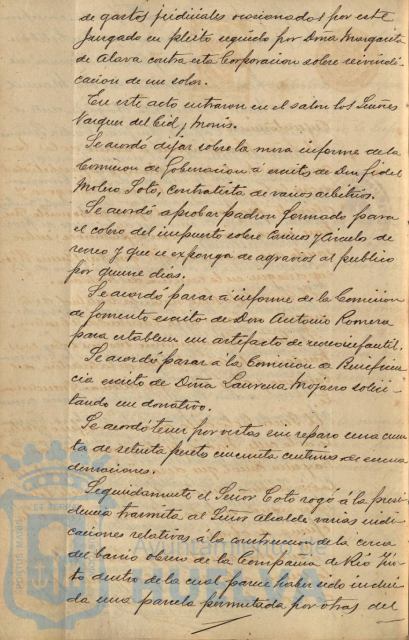 de gastos judiciales ocasionados por este
Juzgado en pleito seguido por Doña Margarita
de Alava contra esta Corporacion sobre reivindi-
cacion de un solar.
En este acto entraron en el salon los Señores
Vazquez del Cid y Monis.
Se acordó dejar sobre la mesa informe de la
Comision de Gobernacion á escritos de Don Fidel
Molero Soto, contratista de varios arbitrios.
Se acordó aprobar padron formado para
el cobro del impuesto sobre Casinos y Circulos de
recreo y que se exponga de agravios al publico
por quince dias.
Se acordó pasar á informe de la Comision
de fomento escrito de Don Antonio Romera
para establecer un artefacto de recreo infantil.
Se acordó pasar á la Comision de Beneficen-
cia escrito de Doña Laurena Mojarro solici-
tando un donativo.
Se acordó tener por vistas sin reparo una cuen-
ta de setenta pesetas cincuenta centimos de encua-
dernaciones.
Seguidamente el Señor Coto rogó á la presi-
dencia trasmita al Señor Alcalde varias indi-
caciones relativas á la construccion de la cerca
del barrio obrero de la Compañia de Rio Tin-
to dentro de la cual parece haber sido inclui-
da una parcela permutada por otras del